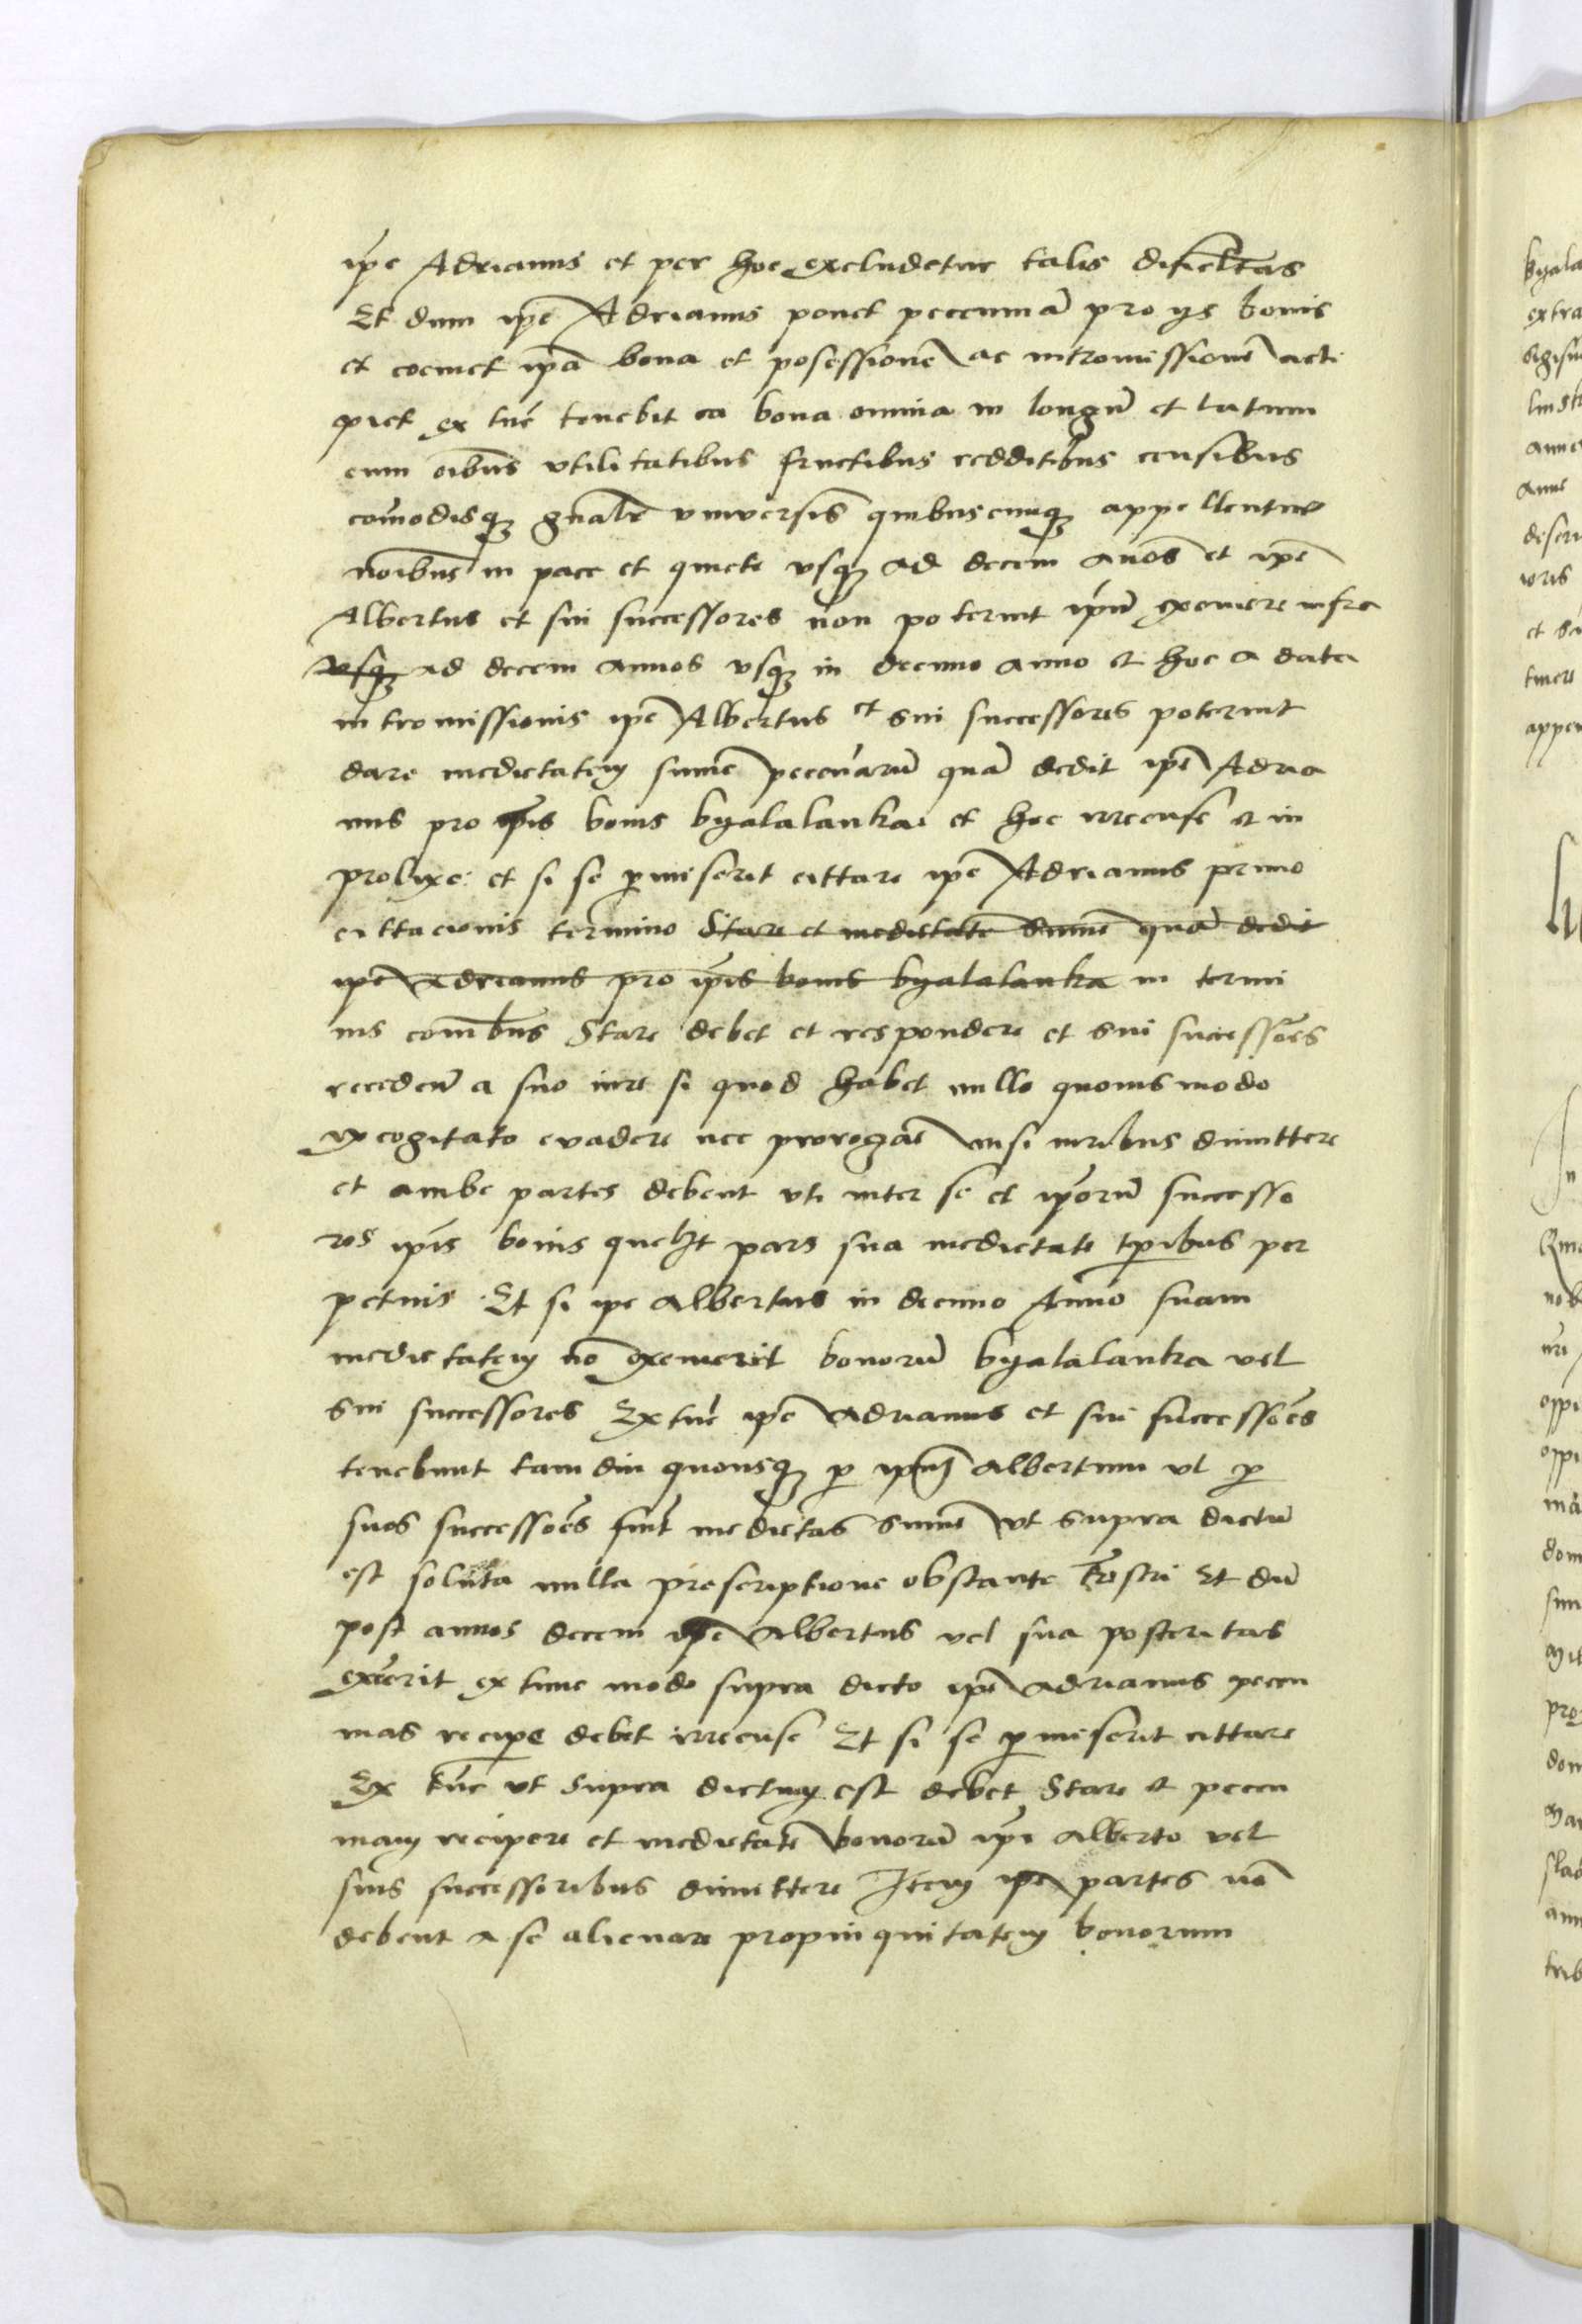 ip̃e Adrianus et per hoc excludetur talis dificltas
Et dum ip̃e Adrianus ponet pecuniā pro ijs bonis
et coemet ip̃a bona et posessionē ac intromissionē acti
piet ex tūc tenebit ea bona omnia in longū et latum
cum oībus vtilitatibus fructibus redditibus censibus
com̄odisq₃ gn̄alr̄ vniversis quibuscumq₃ appellentur
noībus in pace et quiete vsq₃ ad decem annos et ip̃e
Albertus et sui successores non poterint ip̃ū exemere infra
vsq₃ ad decem annos vsq₃ in decimo anno et hoc a data
intromissionis ip̃e Albertus et sui successores poterint
dare medietatem sum̄e pecuniarū quā dedit ip̃e Adria
nus pro ip̃is bonis byalalanka et hoc irrecuse et in
prolixe et si se p̱miserit cittare ip̃e Adrianus primo
cittacionis termino stare et medietatē sum̄e quā dedit
ip̃e Adrianus pro ip̃is bonis byalalanka in termi
nis com̄bus stare debet et respondere et sui successōes
recedendū a suo iure si quod habet nullo quouis modo
excogitato evadere nec prorogar̄ nisi iuribus dimittere
et ambe partes debent vti inter se et ip̃orū successo
res ip̃is bonis quelȝt pars sua medietate tp̱ribus per
petuis Et si ip̃e Albertus in decimo Anno suam
medietatem nō exemerit bonorū byalalanka vel
sui successores Ex tūc ip̃e Adrianus et sui successōes
tenebunt tam diu quousq₃ p̱ ip̃um Albertum vl p̱
suos successōes fuīt medietas sum̄e vt supra dictū
est soluta nulla prescriptione obstante t̄restri Et dū
post annos decem ip̃e Albertus vel sua posteritas
exēerit ex tunc modo supra dicto ip̃e Adrianus pecu
nias recip̱e debet irrecuse Et si se p̱miserit cittare
Ex tūc vt supra dictum est debet stare et pecu
niam recipere et medietatē bonorū ip̃i Alberto vel
suis successoribus dimittere Item ip̃e partes nō
debent a se alienare propinquitatem bonorum